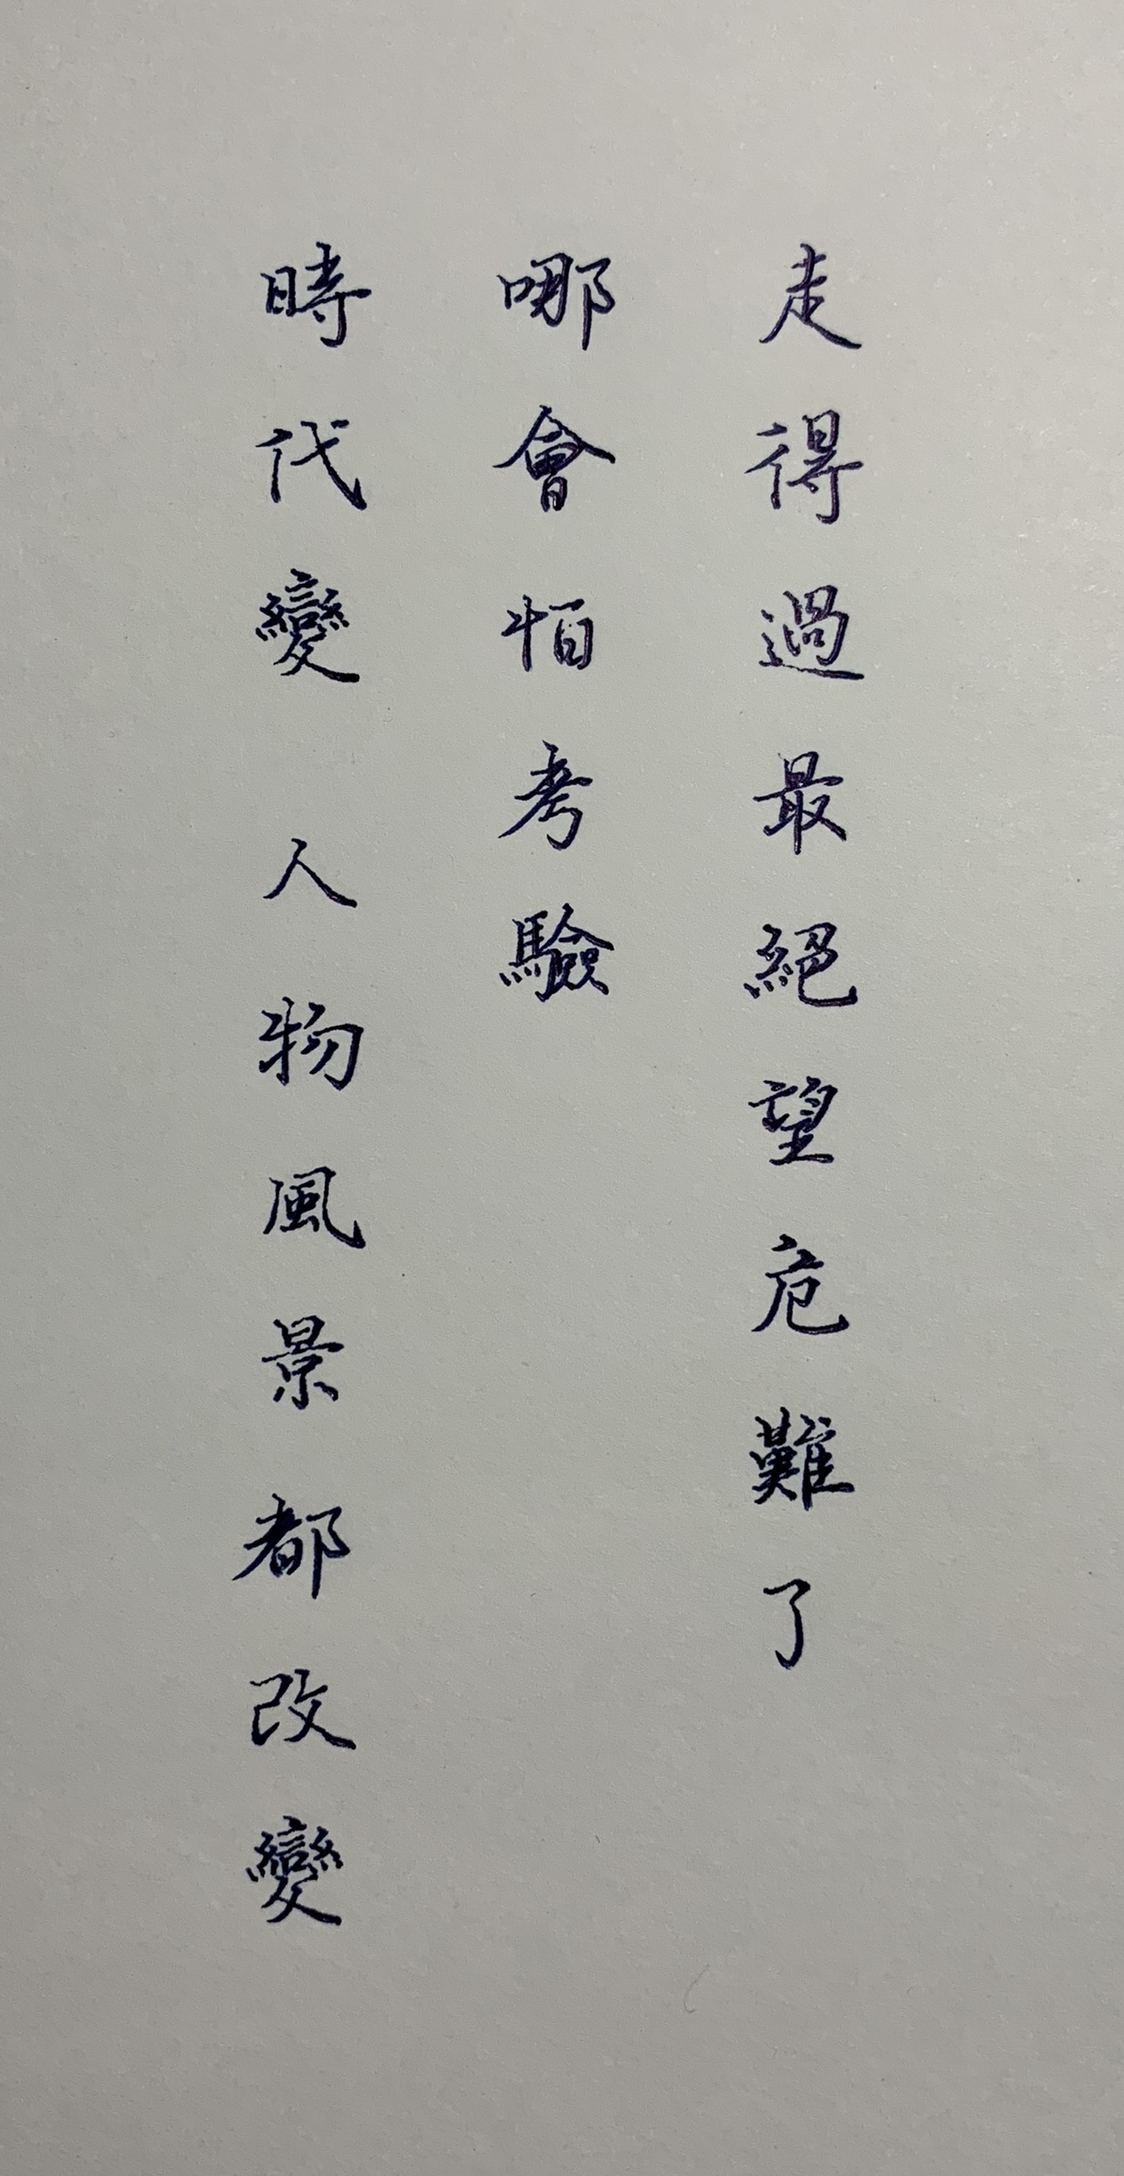 走得過最絕望危難了
哪會怕考驗
時代變 人物風景都改變